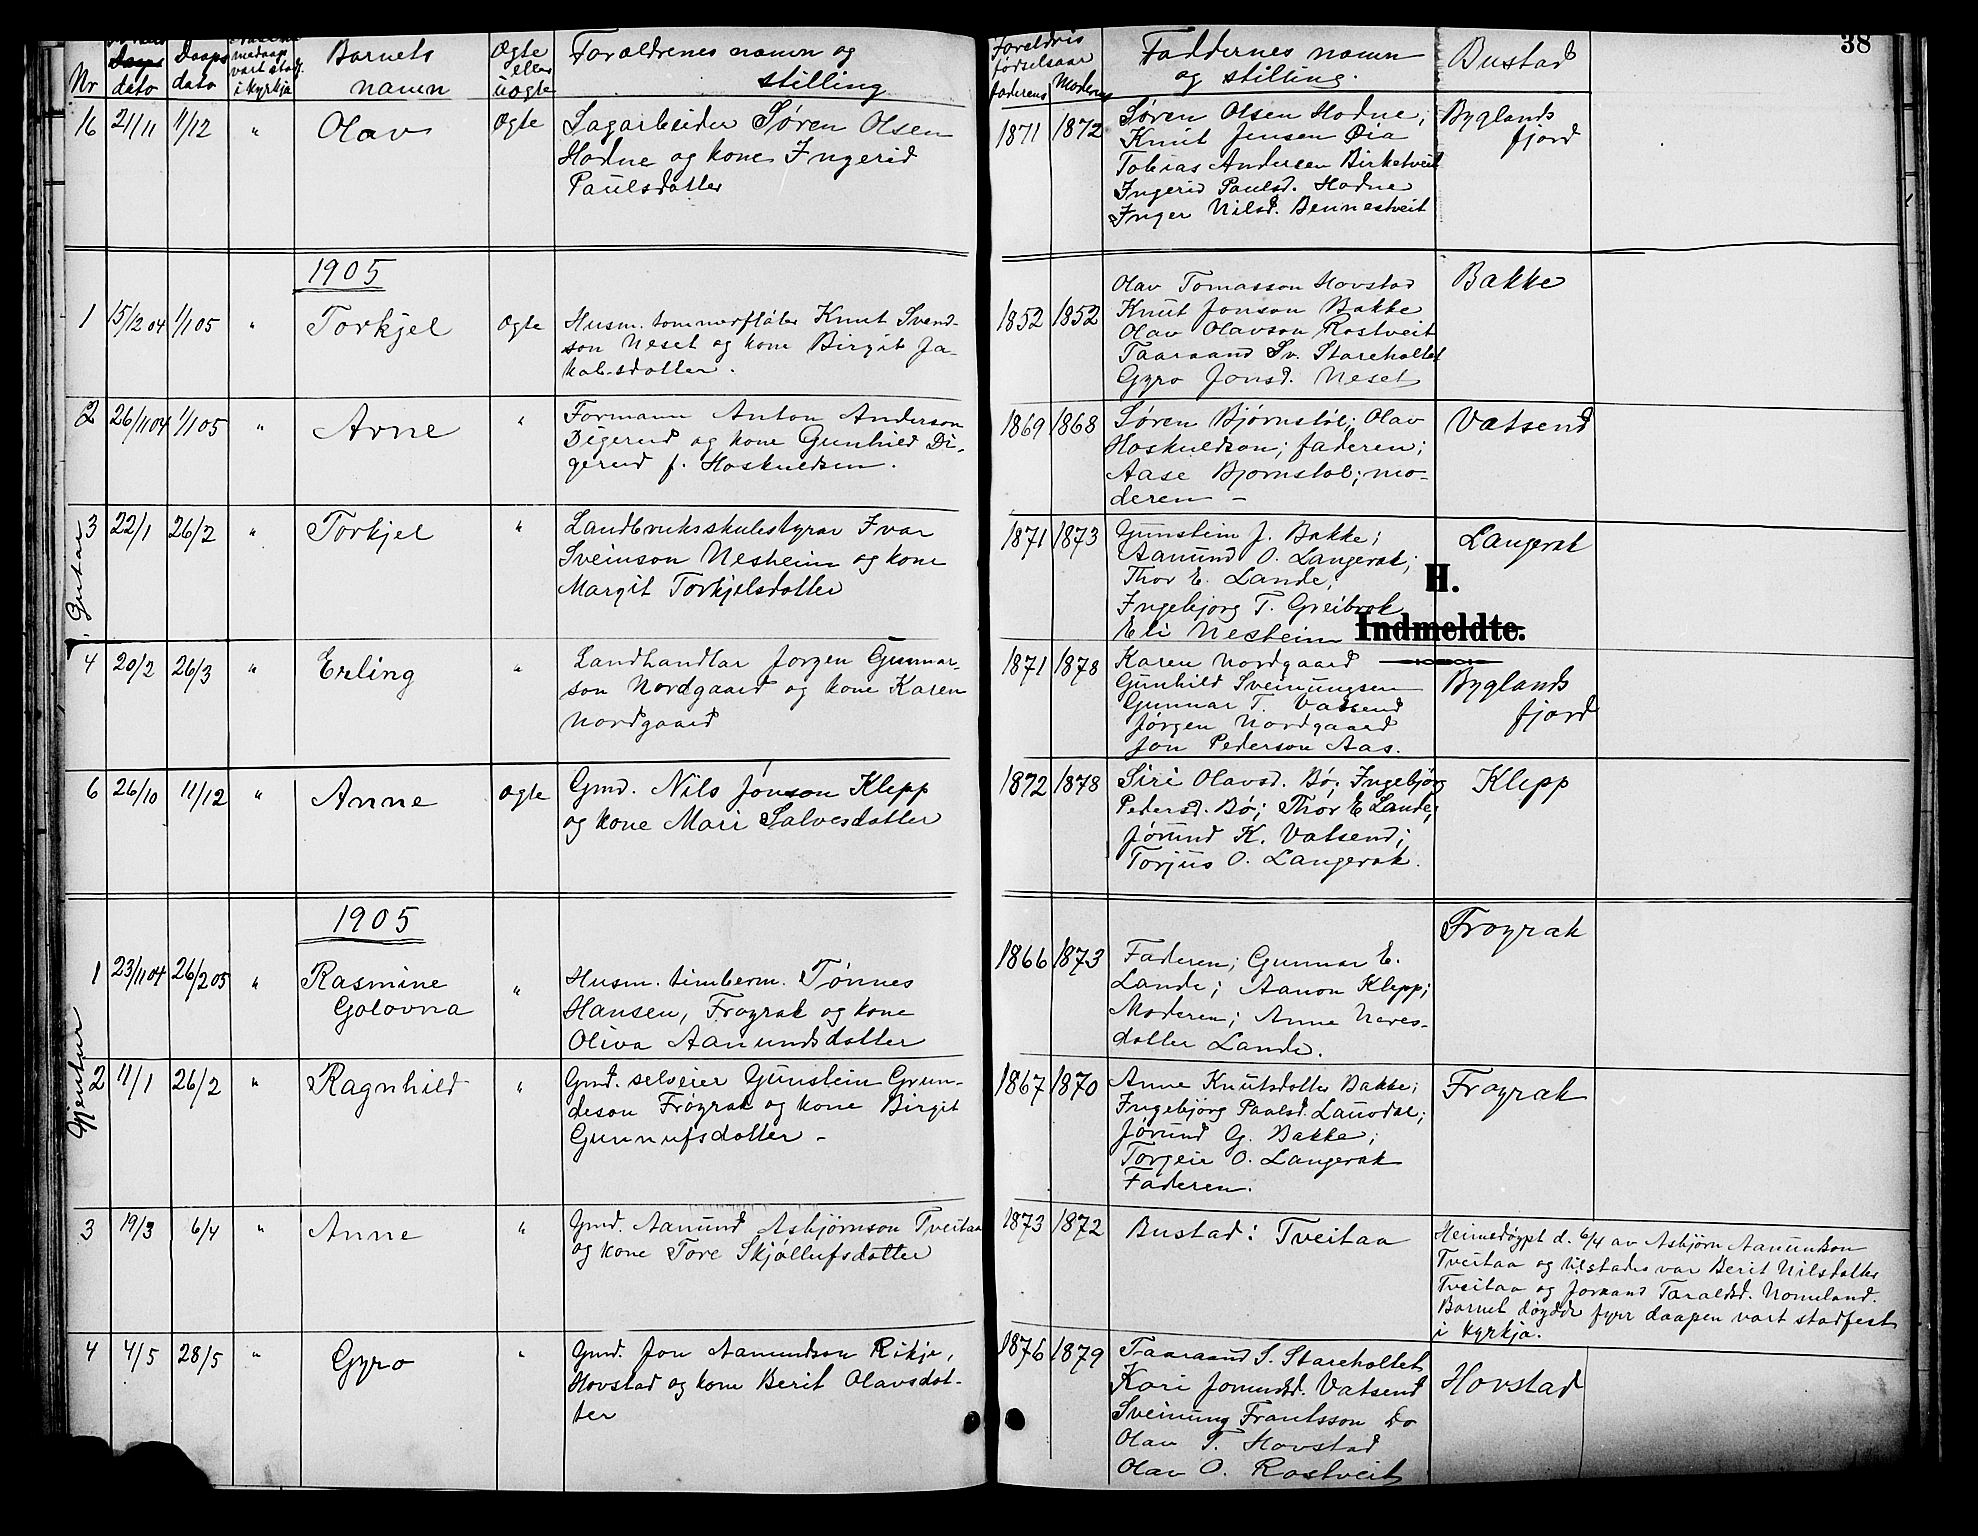 38
Nr
Daaps
dato
Daaps
dato
medaap
vart stadf.
i kyrkja
Barnets
namn
Ogte
eller
uogte
Foraldrenes namn og
stilling
Foreldris
fødselsaar
faderens
Moderens
Faddernes namn
og stilling.
Bustad
16 21/11 11/12 " Olav Ogte
Sagarbeider Søren Olsen
Hodne og kone Ingerid
Paulsdatter
1871 1872
Søren Olsen Hodne;
Knut Jensen Øia
Tobias Andersen Birketveit
Ingerid Paulsd. Hodne
Inger Nilsd. Bennestveit
Byglands
fjord
1905
Gutar
1 15/2 04 1/1 05 " Torkjel Ogte
Husm. tømmerfløter Knut Svend-
son Neset og kone Birgit Ja-
kobsdotter.
1852 1852
Olav Tomasson Hovstad
Knut Jonson Bakke
Olav Olavson Rostveit
Taaraand Sv. Stareholtet
Gyro Jonsd. Neset
Bakke
2 26/11 04 1/1 05 " Arne "
Formann Anton Anderson
Digerud og kone Gunhild Di-
gerud f. Hoskuldsen.
1869 1868
Søren Bjørnstøl; Olav
Hoskuldson; faderen;
Aase Bjørnstøl; mo-
deren -
Vatsend
3 22/1 26/2 " Torkjel "
Landbruksskulestyrar Ivar
Sveinson Nesheim og kone
Margit Torkjelsdotter
1871 1873
Gunstein J. Bakke;
Aamund O. Langerak;
Thor E. Lande;
Ingebjørg T. Greibrok
Eli Nesheim
Langerak
H.
Indmeldte.
4 20/2 26/3 " Erling "
Landhandlar Jørgen Gunnar-
son Nordgaard og kone Karen
Nordgaard
1871 1878
Karen Nordgaard
Gunhild Sveinungsen
Gunnar T. Vatsend
Jørgen Nordgaard
Jon Pederson Aas.
Byglands
fjord
6 26/10 11/12 " Anne Ogte
Gmd. Nils Jónson Klepp
og kone Mari Salvesdotter
1872 1878
Siri Olavsd. Bø; Ingebjørg
Pedersd. Bø; Thor E Lande;
Jørund K. Vatsend;
Torjus O. Langerak.
Klepp
1905
Gjentur
1 23/11 04 26/2 05 " Rasmine
Golovna "
Husm. timberm. Tønnes
Hansen, Frøyrak og kone
Oliva Aanundsdotter
1866 1873
Faderen; Gunnar E.
Lande; Aanon Klepp;
Moderen; Anne Neves-
dotter Lande.
Frøyrak
2 11/1 26/2 " Ragnhild "
Gmd. selveier Gunstein Grun-
deson Frøyrak og kone Birgit
Gunnufsdotter -
1867 1870
Anne Knutsdotter Bakke;
Ingebjørg Paalsd. Lauvdal;
Jørund G. Bakke;
Torgeir O. Langerak
Faderen.
Frøyrak
3 19/3 6/4 " Anne "
Gmd. Aanund Asbjørnson Tveitaa
og kone Tore Skjøllufsdotter
1873 1872
Bustad: Tveitaa
Heimedøypt d. 6/4 av Asbjørn Aanundson
Tveitaa og tilstades var Berit Nilsdotter
Tveitaa og Joraand Taraldsd. Nomeland.
Barnet døydde fyrr daapen vart stadfest
i kyrkja.
4 4/5 28/5 " Gyro "
Gmd. Jon Aamundson Rikje,
Hovstad og kone Berit Olavsdot-
ter
1876 1879
Taaraand S. Stareholtet
Kari Jomundsd. Vatsend
Sveinung Frantsson Do
Olav T. Hovstad
Olav O. Rostveit
Hovstad